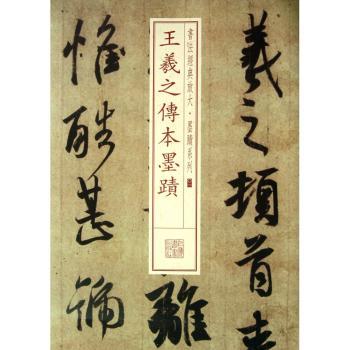 羲之頓首喪
書法經典放大·墨蹟系列
王羲之傳本墨蹟
離
惟酷甚號